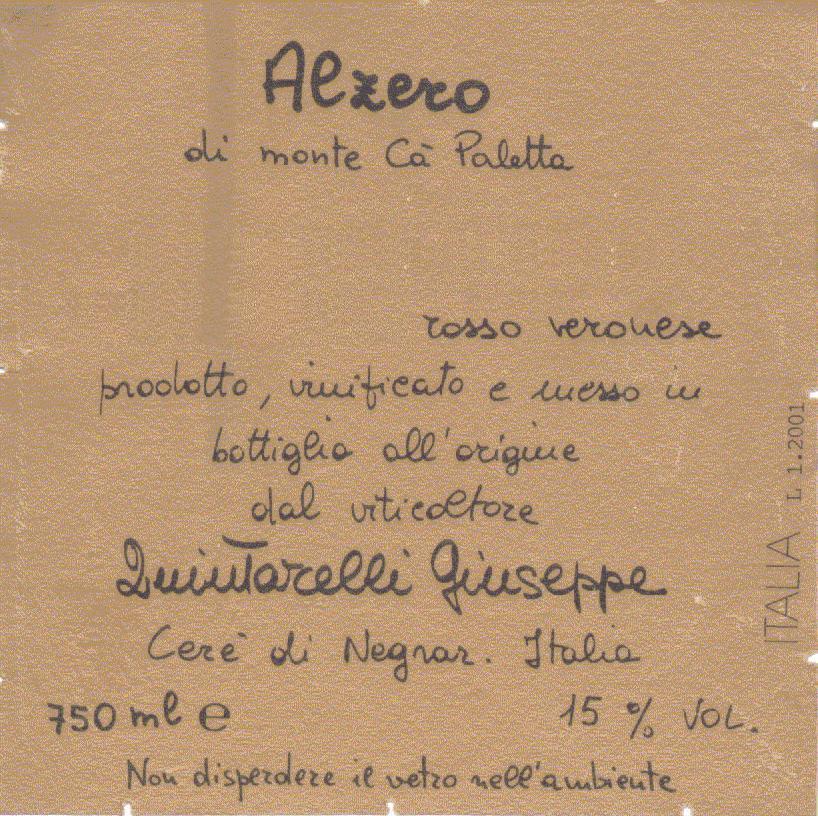 Alzero
di monte Cà Paletta
rosso veronese
prodotto, vinificato e messo in
bottiglia all'origine
dal viticoltore
Quintarelli Giuseppe
Cerè di Negrar. Italia
750 ml e
15 % VOL.
Non disperdere il vetro nell'ambiente
ITALIA L 1.2001